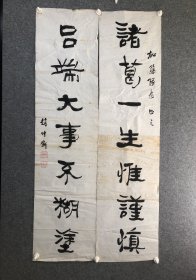 諸葛一生惟謹慎
呂端大事不糊塗